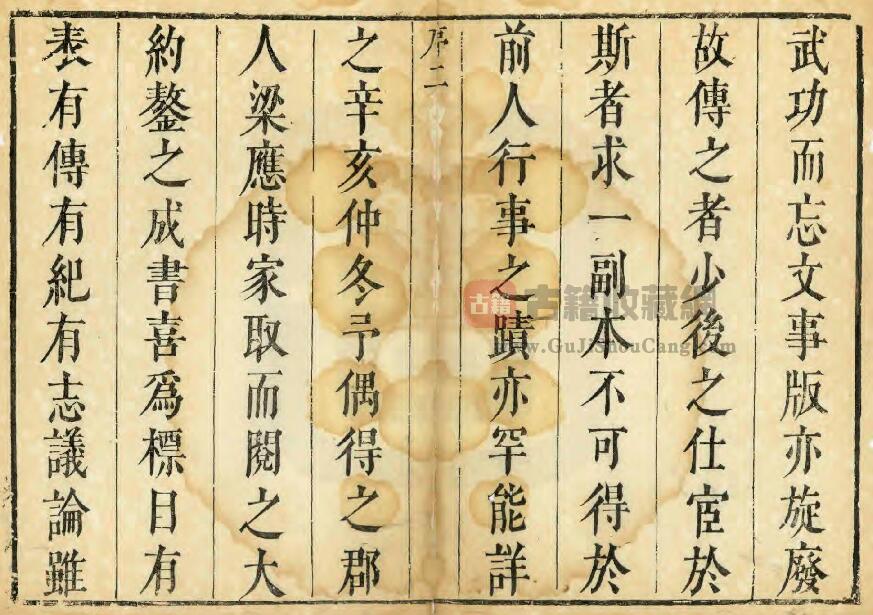 武功而忘文事版亦旋廢
故傳之者少後之仕宦於
斯者求一副本不可得於
前人行事之蹟亦罕能詳
序二
之辛亥仲冬予偶得之郡
人梁應時家取而閱之大
約鏊之成書喜爲標目有
表有傳有紀有志議論雖
古籍
古籍收藏網
www.GuJiShouCang.com